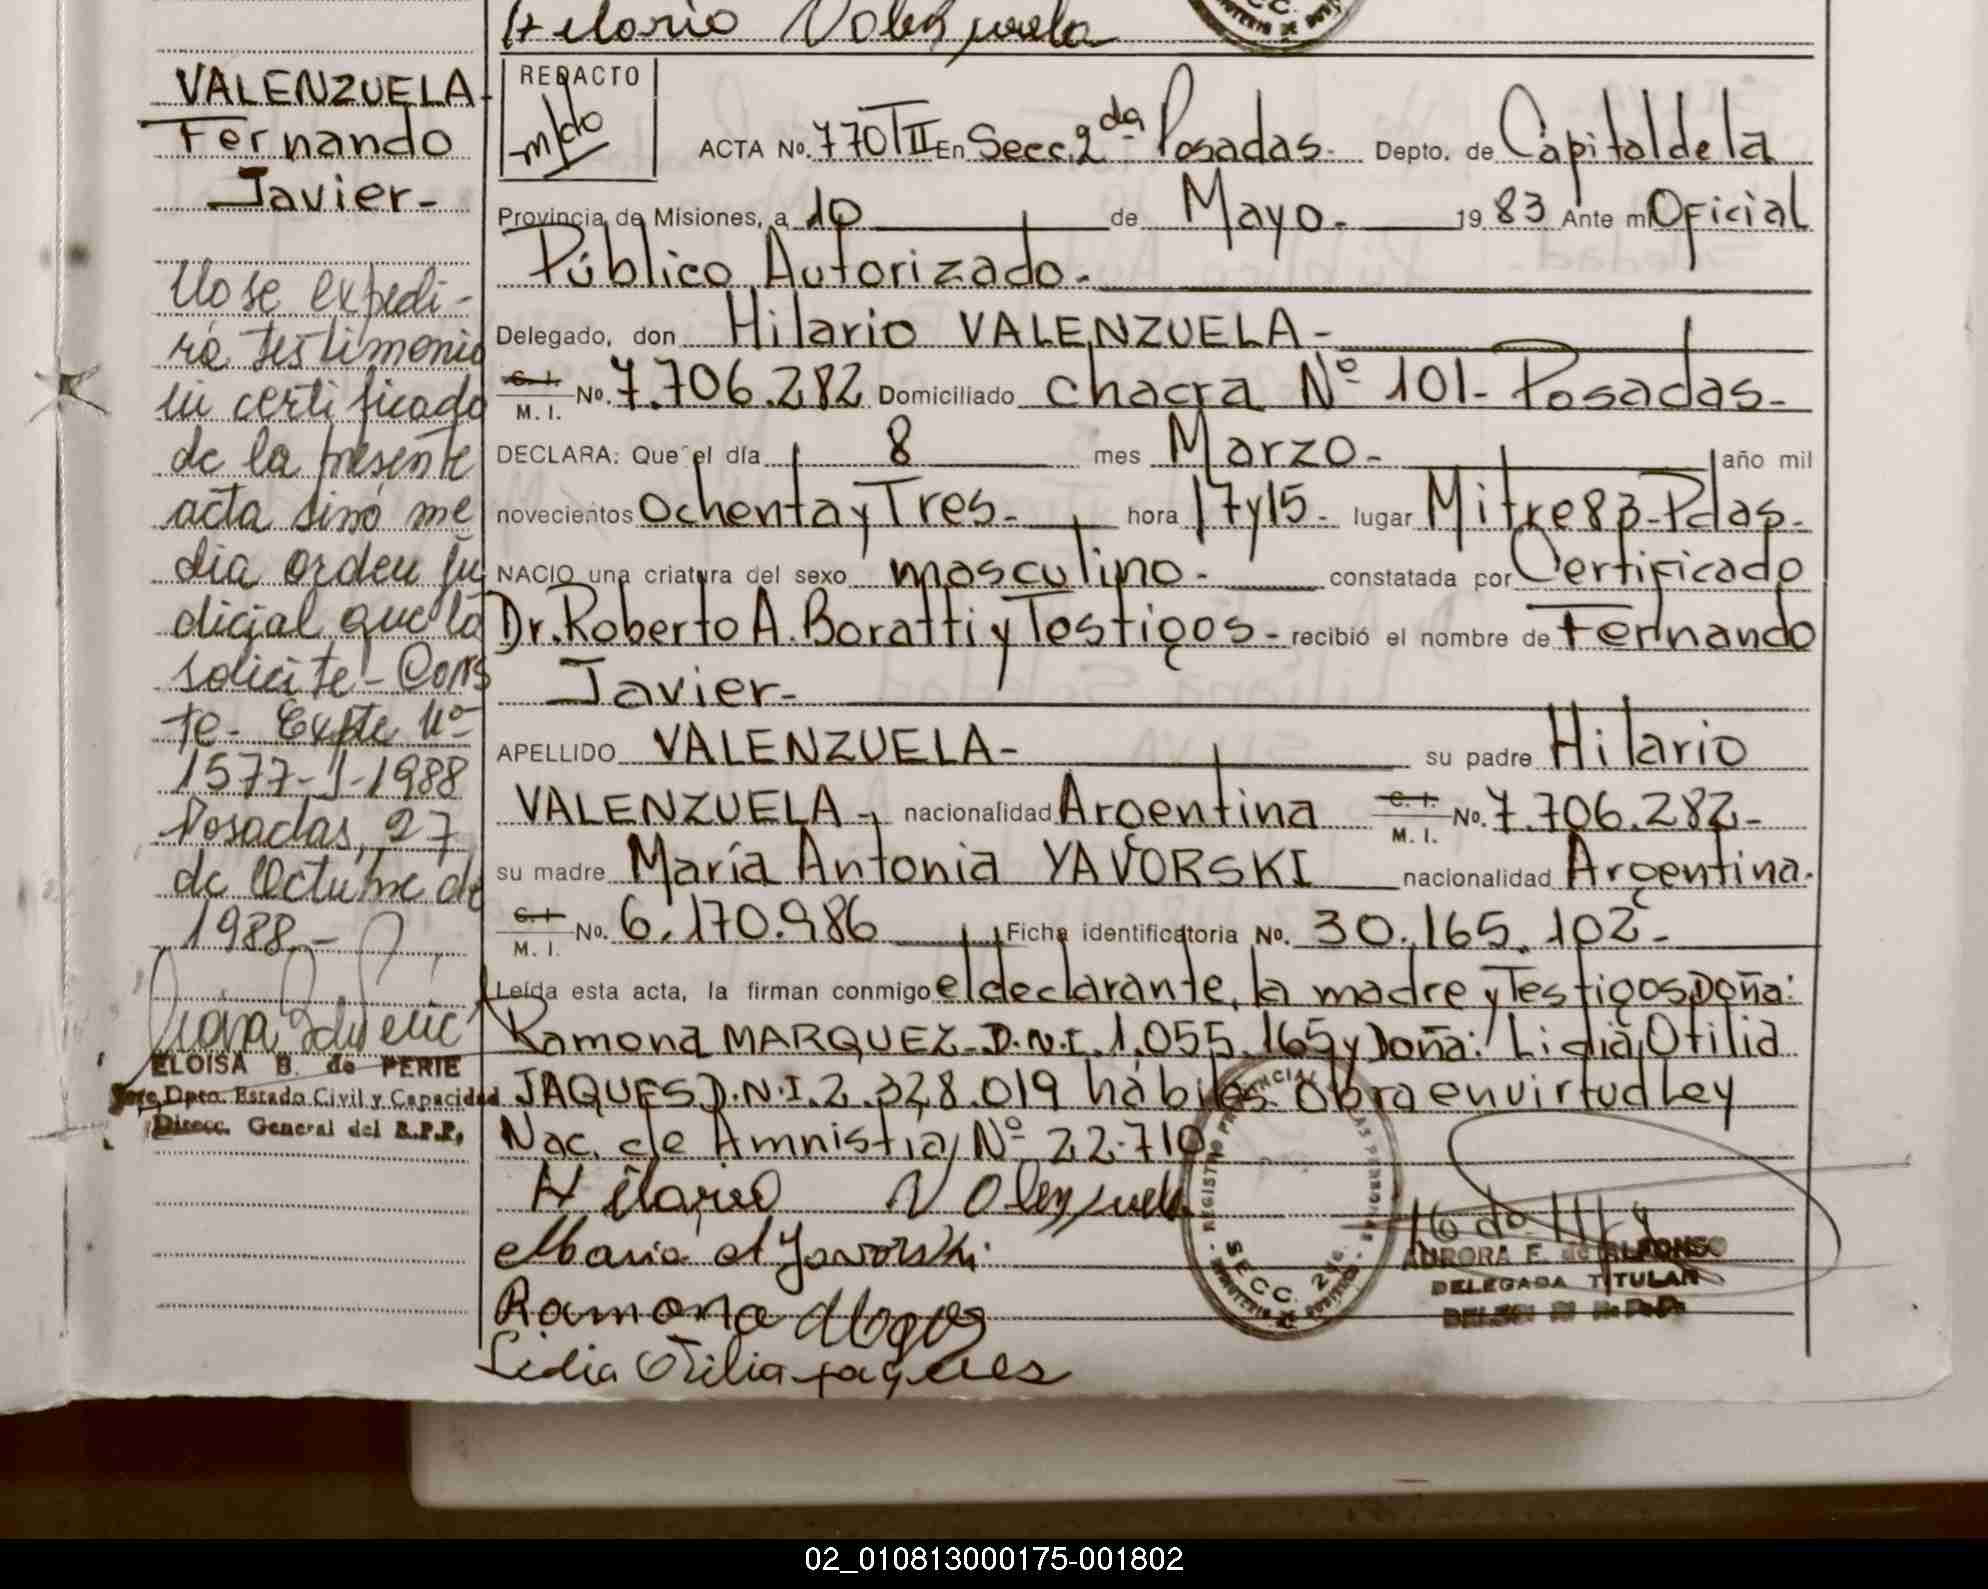 Hilario Valenzuela
VALENZUELA
Fernando
Javier-
No se expedi-
rá testimonio
ni certificado
de la presente
acta sinó me
dia orden ju
dicial que lo
solicite- Cons
te- Expte Nº
1577-J-1988
Posadas, 27
de Octubre de
1988.-
ELOISA B. de PERIE
Jefe Dpto. Estado Civil y Capacidad
Direcc. General del R.P.P.
REDACTO
ACTA No. 770 TII En Secc. 2da Posadas- Depto. de Capital de la
Provincia de Misiones, a 10 de Mayo- 19 83 Ante mí Oficial
Público Autorizado-
Delegado, don Hilario VALENZUELA-
C. I. M. I. No. 7.706.282 Domiciliado chacra Nº 101- Posadas-
DECLARA: Que el día 8 mes Marzo- año mil
novecientos Ochenta y Tres- hora 17 y 15- lugar Mitre 83-Pdas-
NACIO una criatura del sexo masculino- constatada por Certificado
Dr. Roberto A. Boratti y Testigos- recibió el nombre de Fernando
Javier-
APELLIDO VALENZUELA- su padre Hilario
VALENZUELA- nacionalidad Argentina C. I. M. I. No. 7.706.282-
su madre María Antonia YAVORSKI nacionalidad Argentina.
C. I. M. I. No. 6.170.986 Ficha identificatoria No. 30.165.102-
Leída esta acta, la firman conmigo el declarante, la madre y Testigos Doña:
Ramona MARQUEZ- D.N.I. 1.055.165 y Doña: Lidia Otilia
JAQUES D.N.I. 2.328.019 hábiles- Obra en virtud Ley
Nac. de Amnistia Nº 22.710.
Hilario Valenzuela
Maria A Yavorski
Ramona
Lidia Otilia jaques
REGISTRO PROVINCIAL DE LAS PERSONAS
SECC. 2da.
MINISTERIO DE GOBIERNO
AURORA F. de ALFONSO
DELEGADA TITULAR
02_010813000175-001802